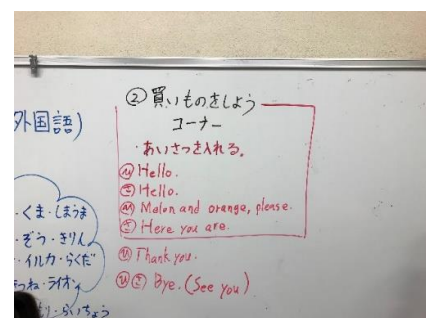 外国語)
・くま・しまうま
・ぞう・きりん
・イルカ・らくだ
つね・ライオン
らいちょう
②買いものをしよう
コーナー
・あいさつを入れる。
Hello.
Hello.
Melon and orange, please.
Here you are.
Thank you.
Bye. (See you)